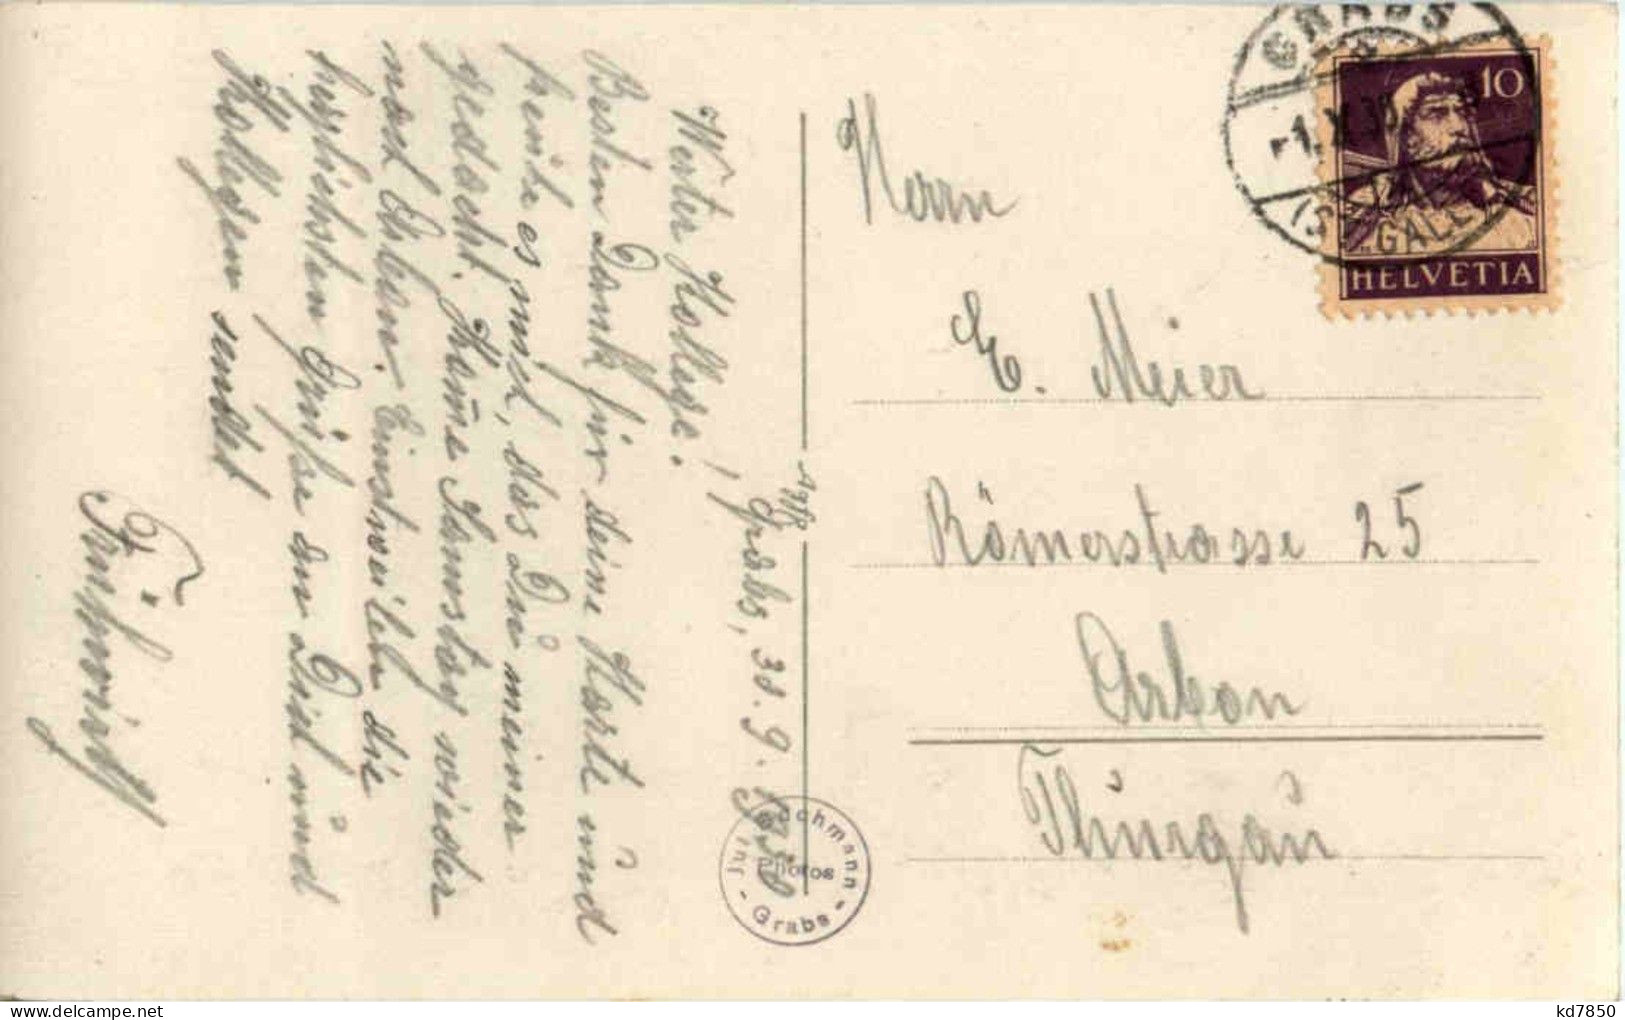 Grabs, 30. 9. 1930
Werter Kollege!
Besten Dank für deine Karte und
heute es mich, das Du meiner
gedacht. Kome Samstag wieder
nach Arbon. Einstweilen die
herzlichsten Grüße an Dich und
Kollegen sendet
Frühwirth
Agfa
Jul. Bachmann
Photos
- Grabs -
GRABS
-1.X.30
(ST. GALL.)
10
HELVETIA
Herrn
E. Meier
Römerstrasse 25
Arbon
Thurgau
kd7850